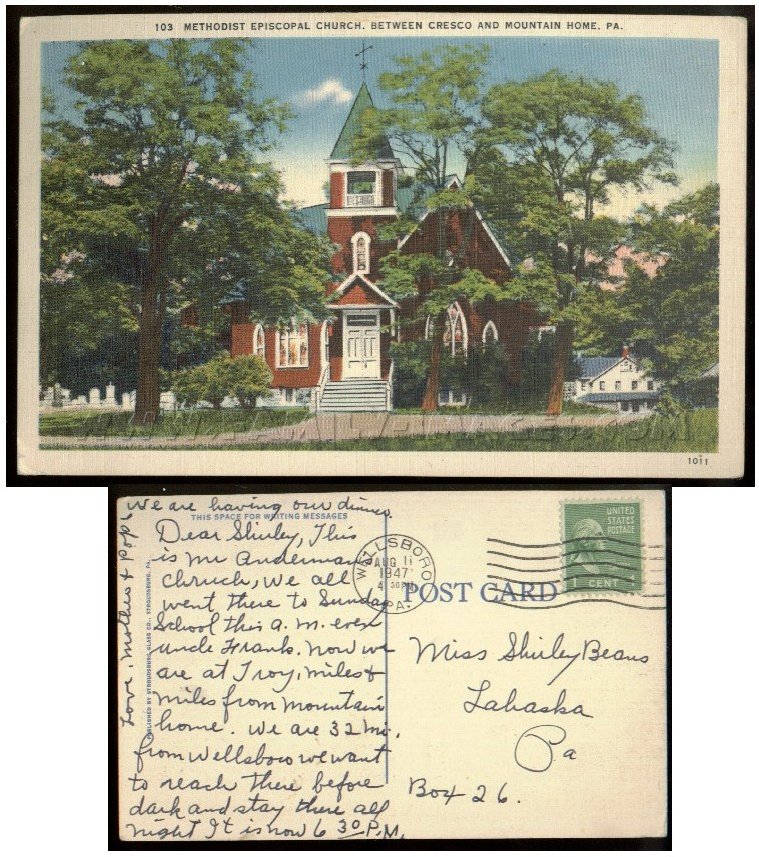 103 METHODIST EPISCOPAL CHURCH, BETWEEN CRESCO AND MOUNTAIN HOME, PA.
1011
We are having our dinner.
THIS SPACE FOR WRITING MESSAGES
Dear Shirley, This
is Mr Anderman
Chruch, We all
went there to Sunday
School this a.m. even
uncle Frank. Now we
are at Troy, miles &
miles from Mountain
home. We are 32 mi.
from Wellsboro we want
to reach there before
dark and stay there all
night It is now 6 30 P.M.
Love, Mother & Pop
PUBLISHED BY STROUDSBURG GLASS CO., STROUDSBURG, PA.
WELLSBORO
AUG 11
1947
4 30 PM
PA.
POST CARD
UNITED
STATES
POSTAGE
1 CENT
Miss Shirley Beans
Lahaska
Pa
Box 26.